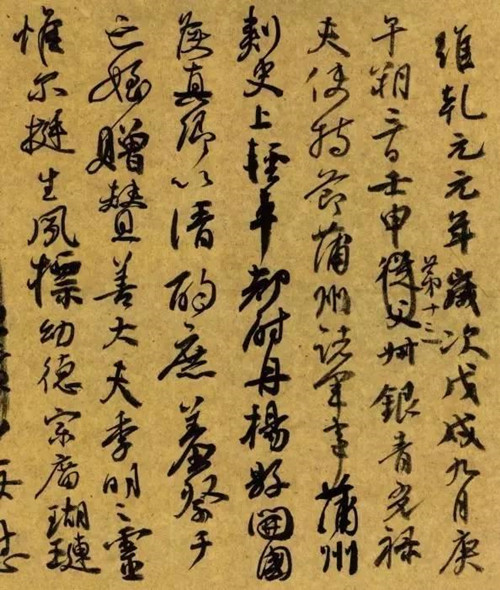 維乾元元年歲次戊戌九月庚
午朔三日壬申從父叔銀青光祿
第十三
夫使持節蒲州諸軍事蒲州
刺史上輕車都尉丹楊縣開國
侯真卿以清酌庶羞祭于
亡姪贈贊善大夫季明之靈
惟爾挺生夙標幼德宗廟瑚璉